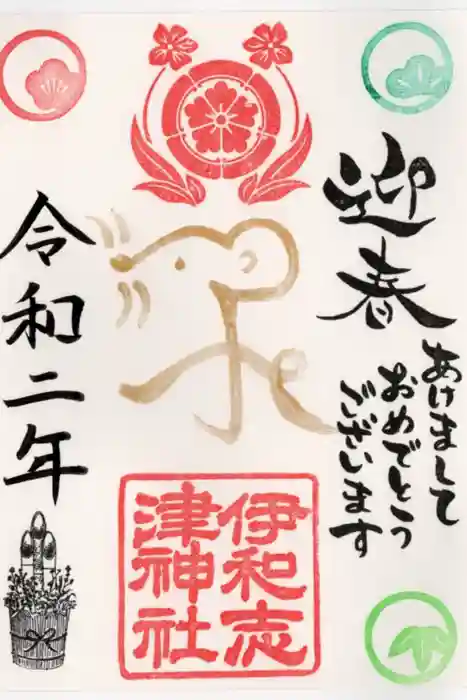 迎春
あけまして
おめでとう
ございます
伊和志
津神社
令和二年